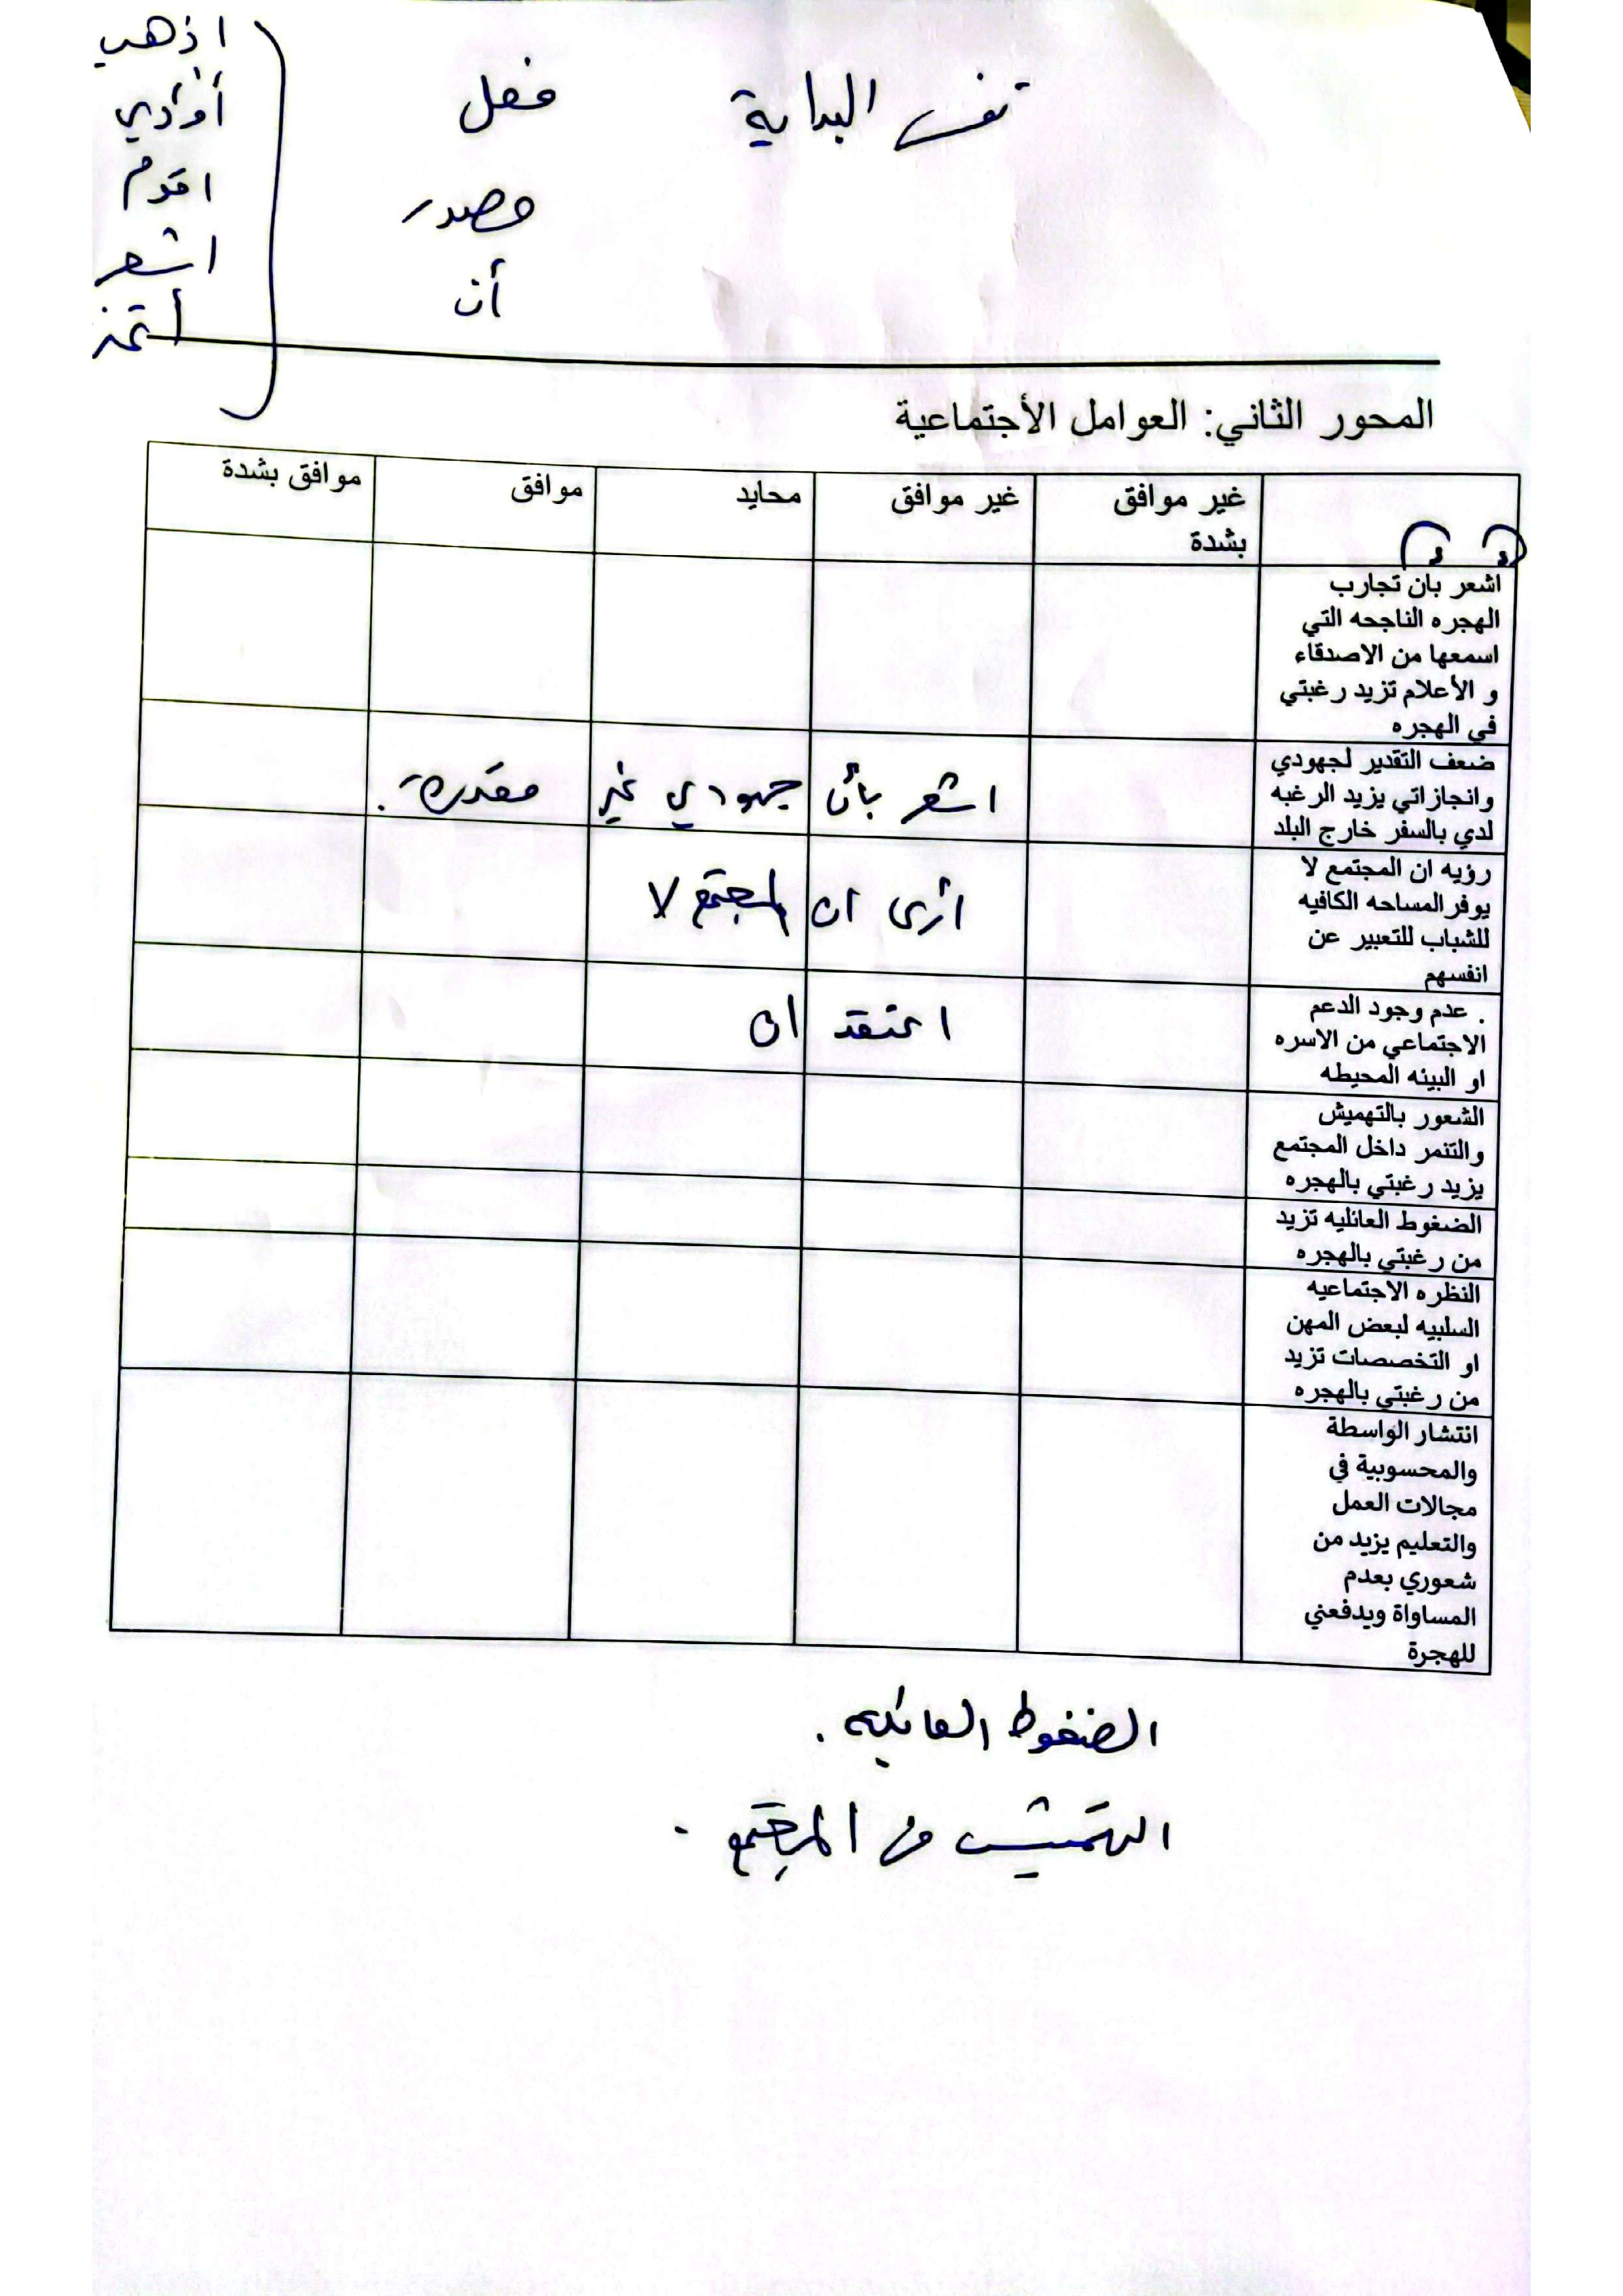 نفس البداية فعل اذهب
أؤدي
مصدر اقوم
أن اشعر
المحور الثاني: العوامل الأجتماعية
غير موافق بشدة غير موافق محايد موافق موافق بشدة
اشعر بان تجارب
الهجره الناجحه التي
اسمعها من الاصدقاء
و الأعلام تزيد رغبتي
في الهجره
ضعف التقدير لجهودي
وانجازاتي يزيد الرغبه
لدي بالسفر خارج البلد
اشعر بأن جهودي غير مقدرة.
رؤيه ان المجتمع لا
يوفر المساحه الكافيه
للشباب للتعبير عن
انفسهم
أرى ان المجتمع لا
. عدم وجود الدعم
الاجتماعي من الاسره
او البيئه المحيطه
اعتقد ان
الشعور بالتهميش
والتنمر داخل المجتمع
يزيد رغبتي بالهجره
الضغوط العائليه تزيد
من رغبتي بالهجره
النظره الاجتماعيه
السلبيه لبعض المهن
او التخصصات تزيد
من رغبتي بالهجره
انتشار الواسطة
والمحسوبية في
مجالات العمل
والتعليم يزيد من
شعوري بعدم
المساواة ويدفعني
للهجرة
الضغوط العائليه.
التهميش من المجتمع.